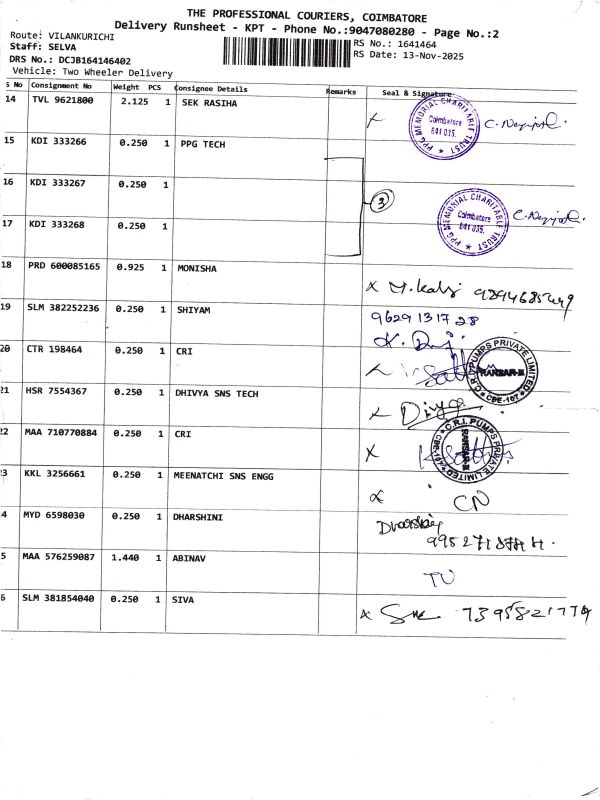 THE PROFESSIONAL COURIERS, COIMBATORE
Delivery Runsheet - KPT - Phone No.:9047080280 - Page No.:2
Route: VILANKURICHI
RS No.: 1641464
Staff: SELVA
RS Date: 13-Nov-2025
DRS No.: DCJB164146402
Vehicle: Two Wheeler Delivery
S No Consignment No Weight PCS Consignee Details Remarks Seal & Signature
14 TVL 9621800 2.125 1 SEK RASIHA
PPG MEMORIAL CHARITABLE TRUST Coimbatore 641 035.
15 KDI 333266 0.250 1 PPG TECH
16 KDI 333267 0.250 1
3
PPG MEMORIAL CHARITABLE TRUST Coimbatore 641 035.
17 KDI 333268 0.250 1
18 PRD 600085165 0.925 1 MONISHA
x
19 SLM 382252236 0.250 1 SHIYAM
9629131728
20 CTR 198464 0.250 1 CRI
C.R.I. PUMPS PRIVATE LIMITED CBE-107
21 HSR 7554367 0.250 1 DHIVYA SNS TECH
x Divya
22 MAA 710770884 0.250 1 CRI
x
C.R.I. PUMPS PRIVATE LIMITED
23 KKL 3256661 0.250 1 MEENATCHI SNS ENGG
CN
4 MYD 6598030 0.250 1 DHARSHINI
5 MAA 576259087 1.440 1 ABINAV
6 SLM 381854040 0.250 1 SIVA
x